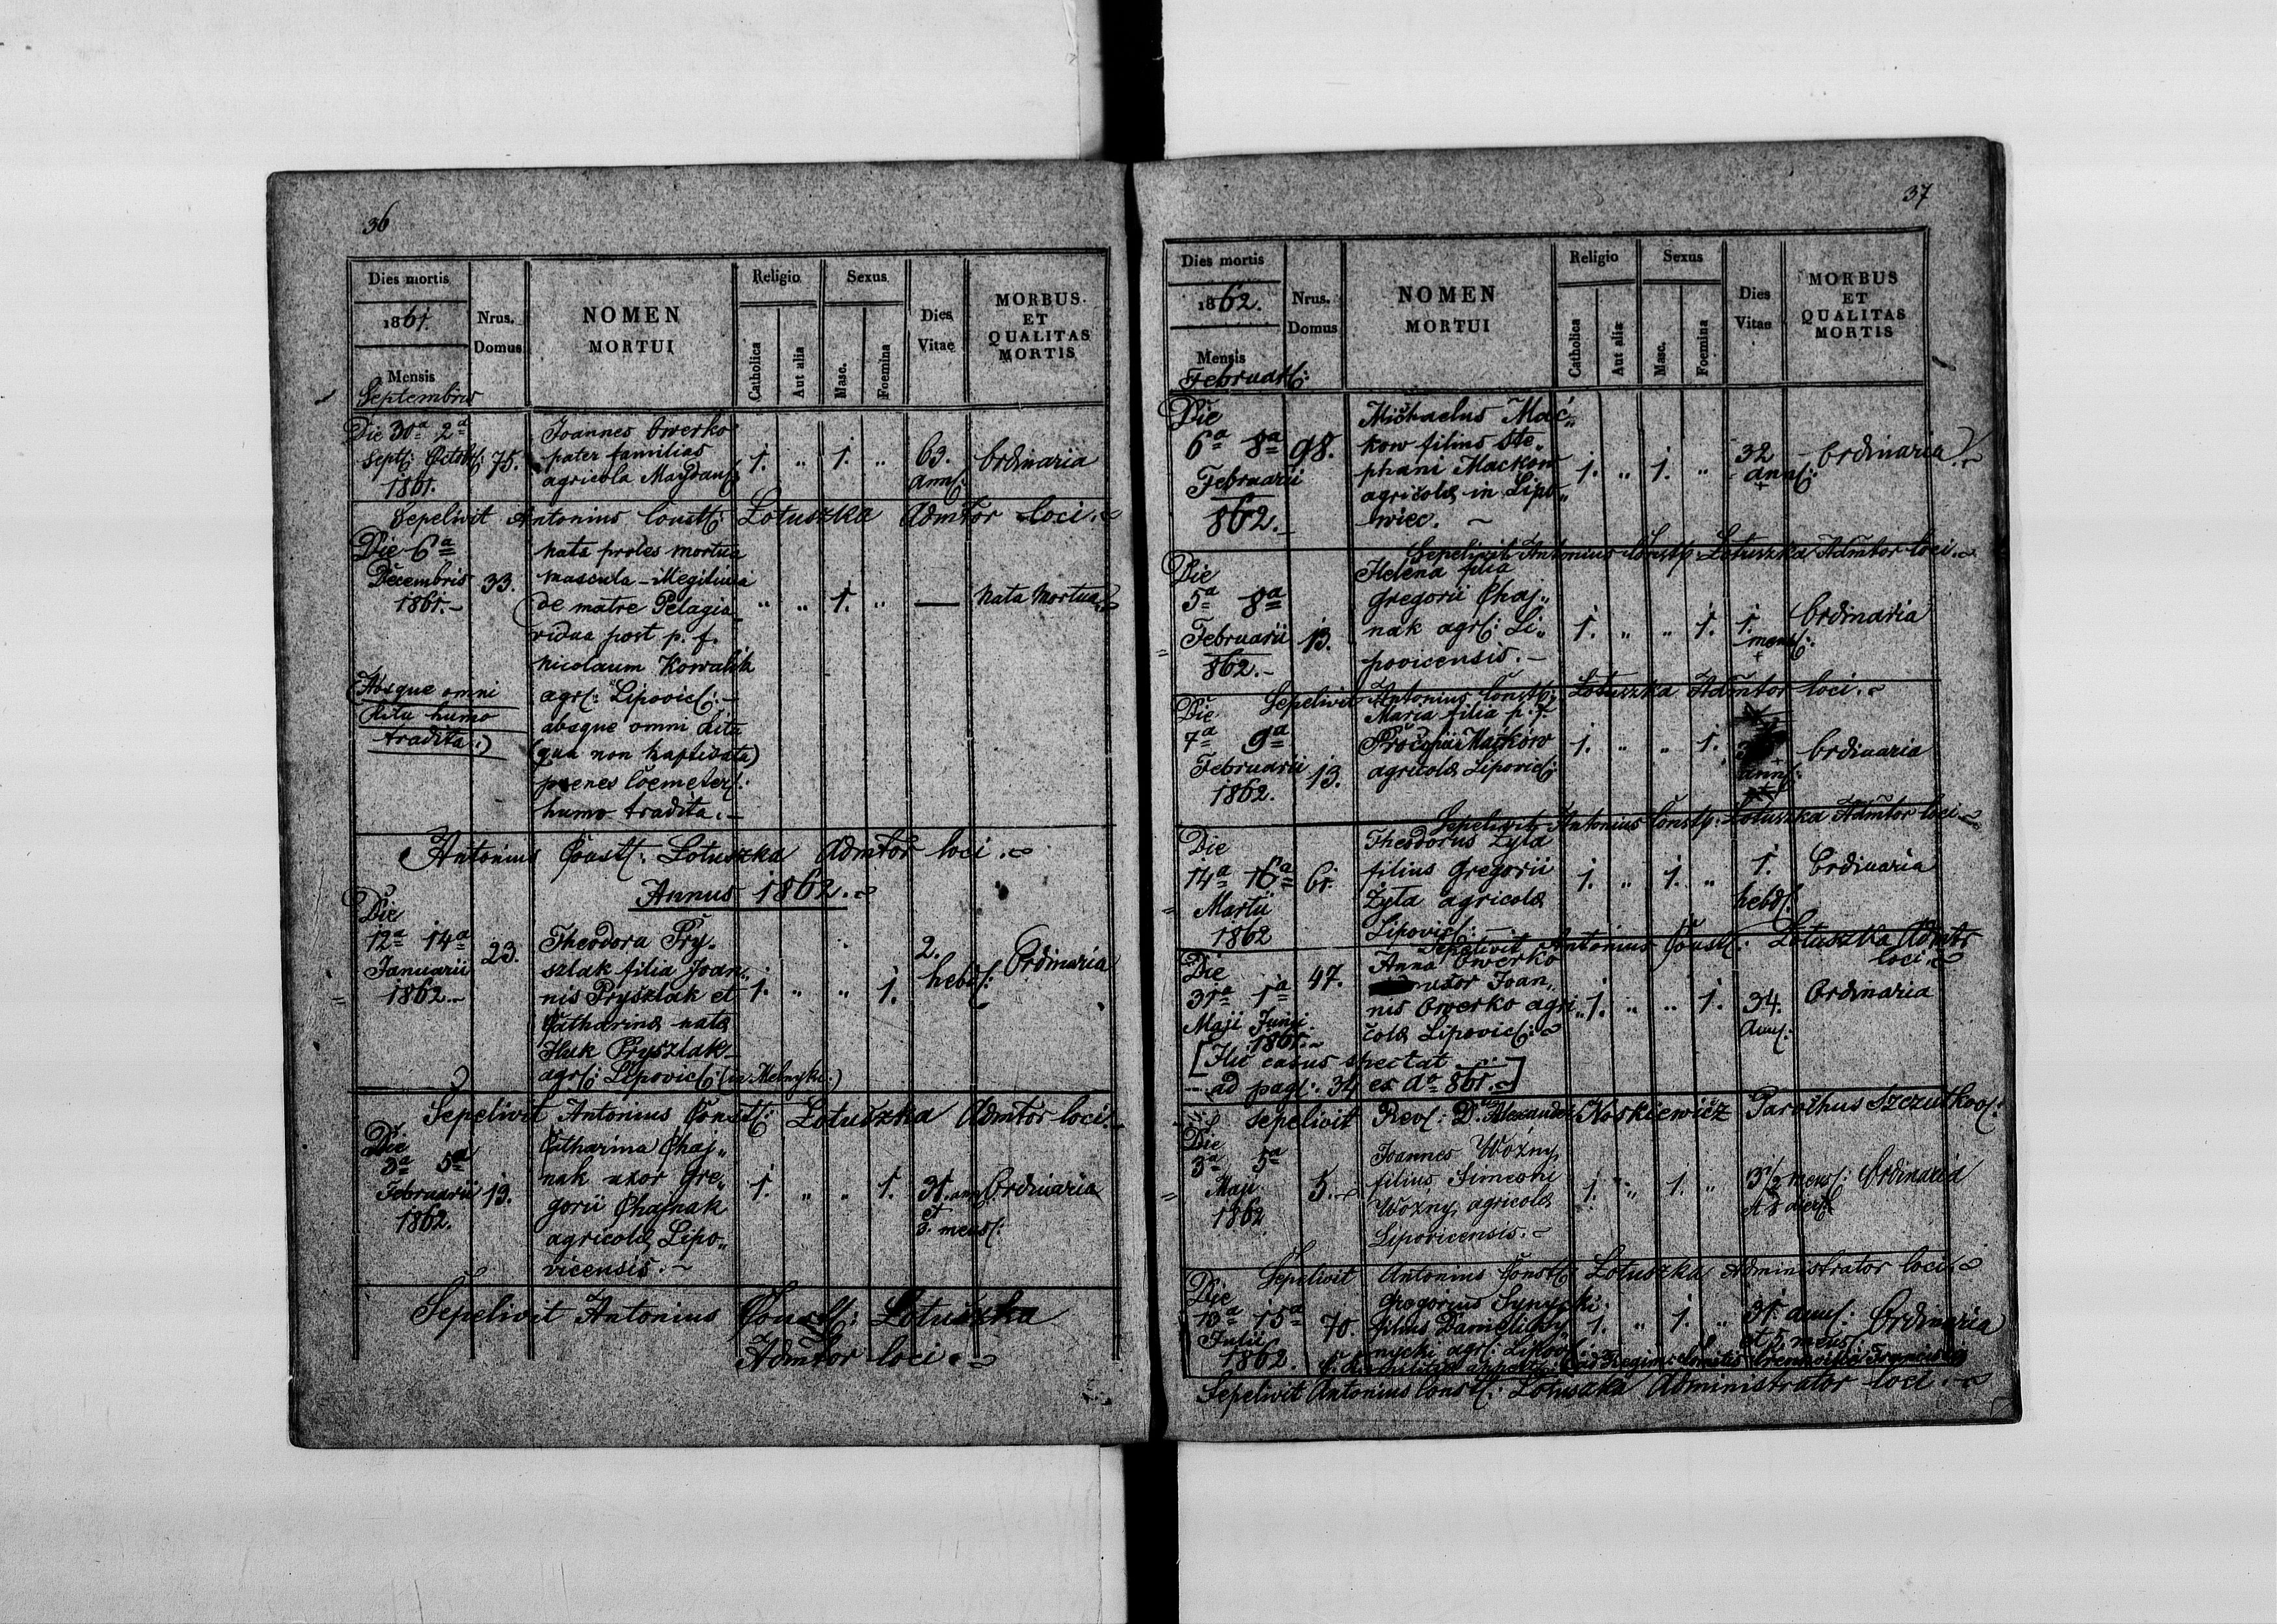 36
Dies mortis
1861.
Mensis
Septembris
Nrus.
Domus
NOMEN
MORTUI
Religio
Catholica
Aut alia
Sexus
Masc.
Foemina
Dies
Vitae
MORBUS
ET
QUALITAS
MORTIS
Die 30a 2a
Sept: Octob: 75.
1861.
Joannes Owerko
pater familias
agricola Maydan:
1. " 1. "
63.
ann:
Ordinaria
Sepelivit Antonius Const: Lotuszka Admtor loci.
Die 6a
Decembris
1861.-
33.
nata proles mortua
mascula - illegitima
de matre Pelagia
vidua post p. f.
Nicolaum Kowalik
agr: Lipovic: -
absque omni ritu
(qua non baptisata)
penes Coemeter:
humo tradita. -
" " 1. " —
nata mortua
(Absque omni
ritu humo
tradita:)
Antonius Const: Lotuszka Admtor loci.
Annus 1862.
Die
12a 14a
Januarii
1862.-
23.
Theodora Pry-
szlak filia Joan-
nis Pryszlak et
Catharina nata
Huk Pryszlak
agr: Lipovic: (in Melnyki:)
1. " " 1.
2.
hebd:
Ordinaria
Sepelivit Antonius Const: Lotuszka Admtor loci.
Die
3a 5a
Februarii
1862.
13.
Catharina Chaj"
nak uxor Gre"
gorii Chajnak
agricola Lipo"
vicensis. -
1. " " 1.
31. ann
et
3. mens:
Ordinaria
Sepelivit Antonius Const: Lotuszka
Admtor loci.
37
Dies mortis
1862.
Mensis
Februar:
Nrus.
Domus
NOMEN
MORTUI
Religio
Catholica
Aut alia
Sexus
Masc.
Foemina
Dies
Vitae
MORBUS
ET
QUALITAS
MORTIS
Die
6a 8a
Februarii
862.
98.
Michaelus Mać"
kow filius Ste"
phani Mackow
agricola in Lipo"
wiec. -
1. " 1. "
32
ann:
Ordinaria
Sepelivit Antonius Const: Lotuszka Admtor loci.
Die
5a 8a
Februarii
862.-
13.
Helena filia
Gregorii Chaj"
nak agr: Li"
povicensis. -
1. " " 1.
1.
mens:
Ordinaria
Sepelivit Antonius Const: Lotuszka Admtor loci.
Die
7a 9a
Februarii
1862.
13.
Maria filia p. f.
Procopii Maćkow
agricola Lipovic:
1. " " 1.
ann:
Ordinaria
Sepelivit Antonius Const: Lotuszka Admtor loci.
Die
14a 16a
Martii
1862
61.
Theodorus Zyla
filius Gregorii
Żyla agricola
Lipovic: -
1. " 1. "
1.
hebd:
Ordinaria
Sepelivit Antonius Const: Lotuszka Admtor
loci.
Die
31a 1a
Maji Junii
1861.
47.
Anna Owerko
uxor Joan"
nis Owerko agri"
cola Lipovic:
1. " " 1.
34.
Ann:
Ordinaria
[Hic casus spectat
ad pag: 34 ex Ao 861.]
Sepelivit Rev: D. Alexander Koskiewicz Parochus Szczutkov:
Die
3a 5a
Maji
1862
5.
Joannes Woźny
filius Simeoni
Woźny agricola
Lipovicensis.
1. " 1. "
3 1/2 mens:
et 8 dier:
Ordinaria
Sepelivit Antonius Const: Lotuszka Administrator loci.
Die
13a 15a
Julii
1862.
70.
Gregorius Synycki
filius Danielis Sy
nycki agr: Lipov:
1. " 1. "
31. ann:
et 5. mens:
Ordinaria
Sepelivit Antonius Const: Lotuszka Administrator loci.